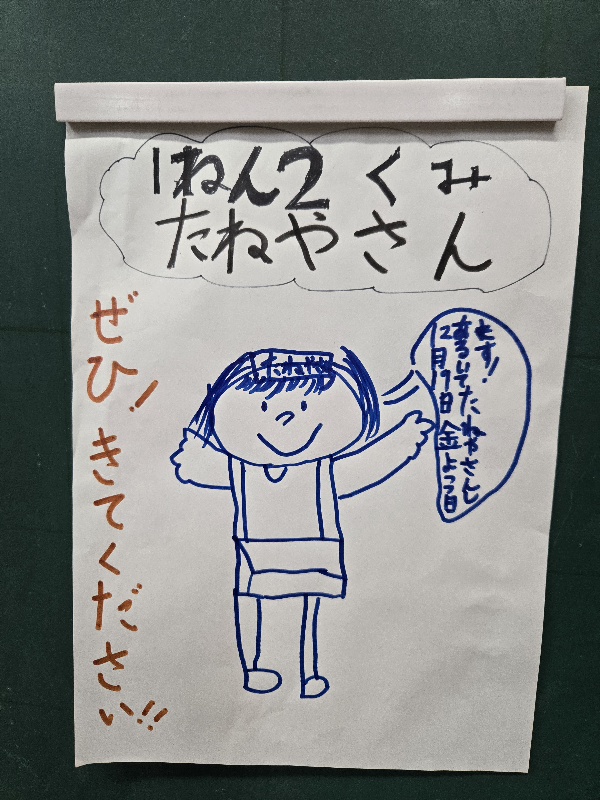 1ねん2くみ
たねやさん
ぜひ!きてください!!
たねや
12月9日金よう日
あるいてたねやさんし
ます!